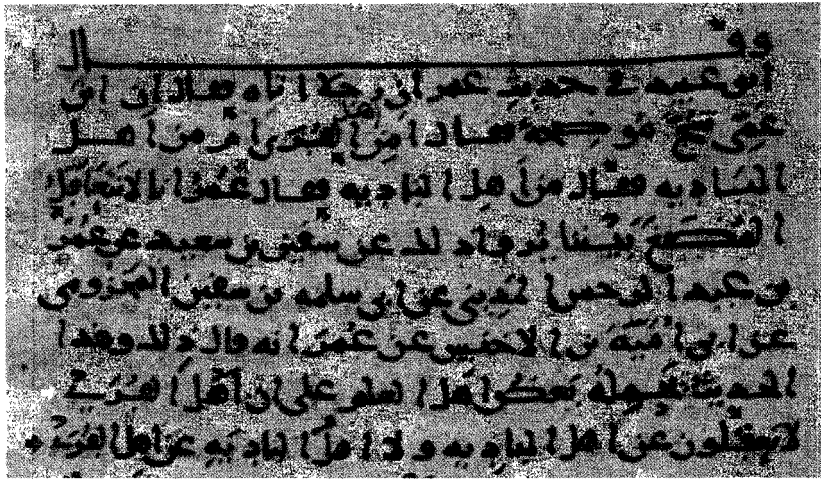 وقال
ابو عبيد في حديث عمر ان رجلا اتاه فقال ان ابن
عمي شج موضحة فقال امن اهل القرى ام من اهل
الباديه فقال من اهل الباديه فقال عمر انا لا نتعاقل
المضغ بيننا يروى ذلك عن سفين بن سعيد عن عمر
بن عبد الرحمن المديني عن ابي سلمه بن سفين المخزومي
عن ابي امية بن الاخنس عن عمر انه قال ذلك وهذا
الحديث يحمله بعض اهل العلم على ان اهل القرى
لا يعقلون عن اهل الباديه ولا اهل الباديه عن اهل القرى